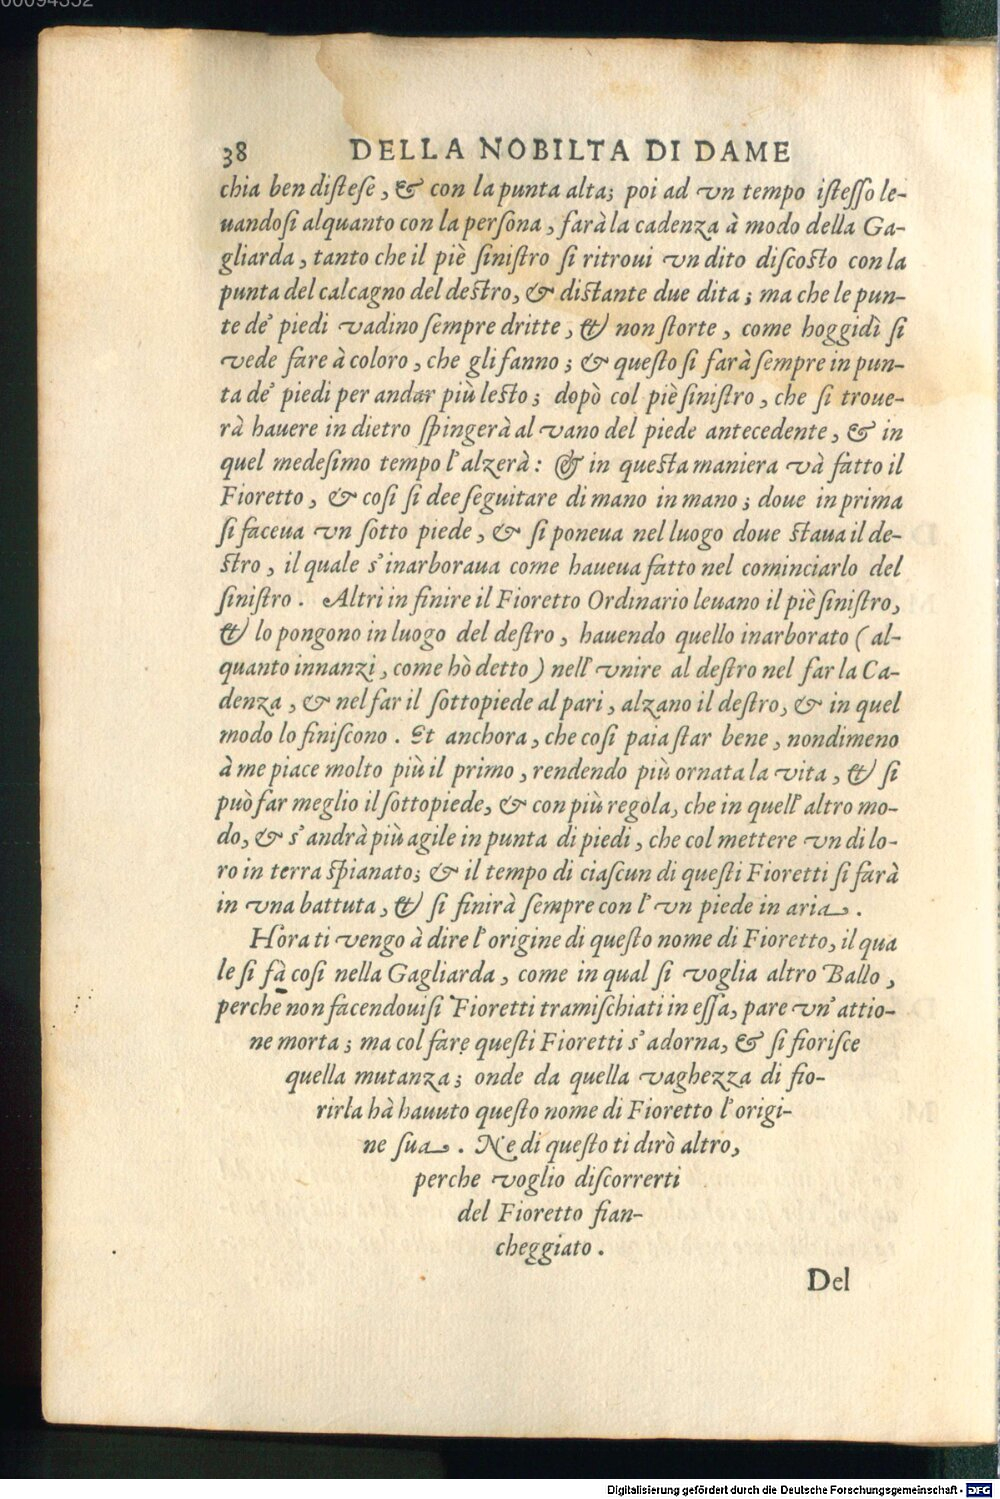 00094352
38 DELLA NOBILTA DI DAME
chia ben distese, & con la punta alta; poi ad vn tempo istesso le-
uandosi alquanto con la persona, farà la cadenza à modo della Ga-
gliarda, tanto che il piè sinistro si ritroui vn dito discosto con la
punta del calcagno del destro, & distante due dita; ma che le pun-
te de' piedi vadino sempre dritte, & non storte, come hoggidì si
vede fare à coloro, che gli fanno; & questo si farà sempre in pun-
ta de' piedi per andar più lesto; dopò col piè sinistro, che si troue-
rà hauere in dietro spingerà al vano del piede antecedente, & in
quel medesimo tempo l'alzerà: & in questa maniera và fatto il
Fioretto, & così si dee seguitare di mano in mano; doue in prima
si faceua vn sotto piede, & si poneua nel luogo doue staua il de-
stro, il quale s'inarboraua come haueua fatto nel cominciarlo del
sinistro. Altri in finire il Fioretto Ordinario leuano il piè sinistro,
& lo pongono in luogo del destro, hauendo quello inarborato (al-
quanto innanzi, come hò detto) nell'vnire al destro nel far la Ca-
denza, & nel far il sottopiede al pari, alzano il destro, & in quel
modo lo finiscono. Et anchora, che così paia star bene, nondimeno
à me piace molto più il primo, rendendo più ornata la vita, & si
può far meglio il sottopiede, & con più regola, che in quell'altro mo-
do, & s'andrà più agile in punta di piedi, che col mettere vn di lo-
ro in terra spianato; & il tempo di ciascun di questi Fioretti si farà
in vna battuta, & si finirà sempre con l'vn piede in aria.
Hora ti vengo à dire l'origine di questo nome di Fioretto, il qua
le si fà così nella Gagliarda, come in qual si voglia altro Ballo,
perche non facendouisi Fioretti tramischiati in essa, pare vn'attio-
ne morta; ma col fare questi Fioretti s'adorna, & si fiorisce
quella mutanza; onde da quella vaghezza di fio-
rirla hà hauuto questo nome di Fioretto l'origi-
ne sua. Ne di questo ti dirò altro,
perche voglio discorrerti
del Fioretto fian-
cheggiato.
Del
Digitalisierung gefördert durch die Deutsche Forschungsgemeinschaft - DFG